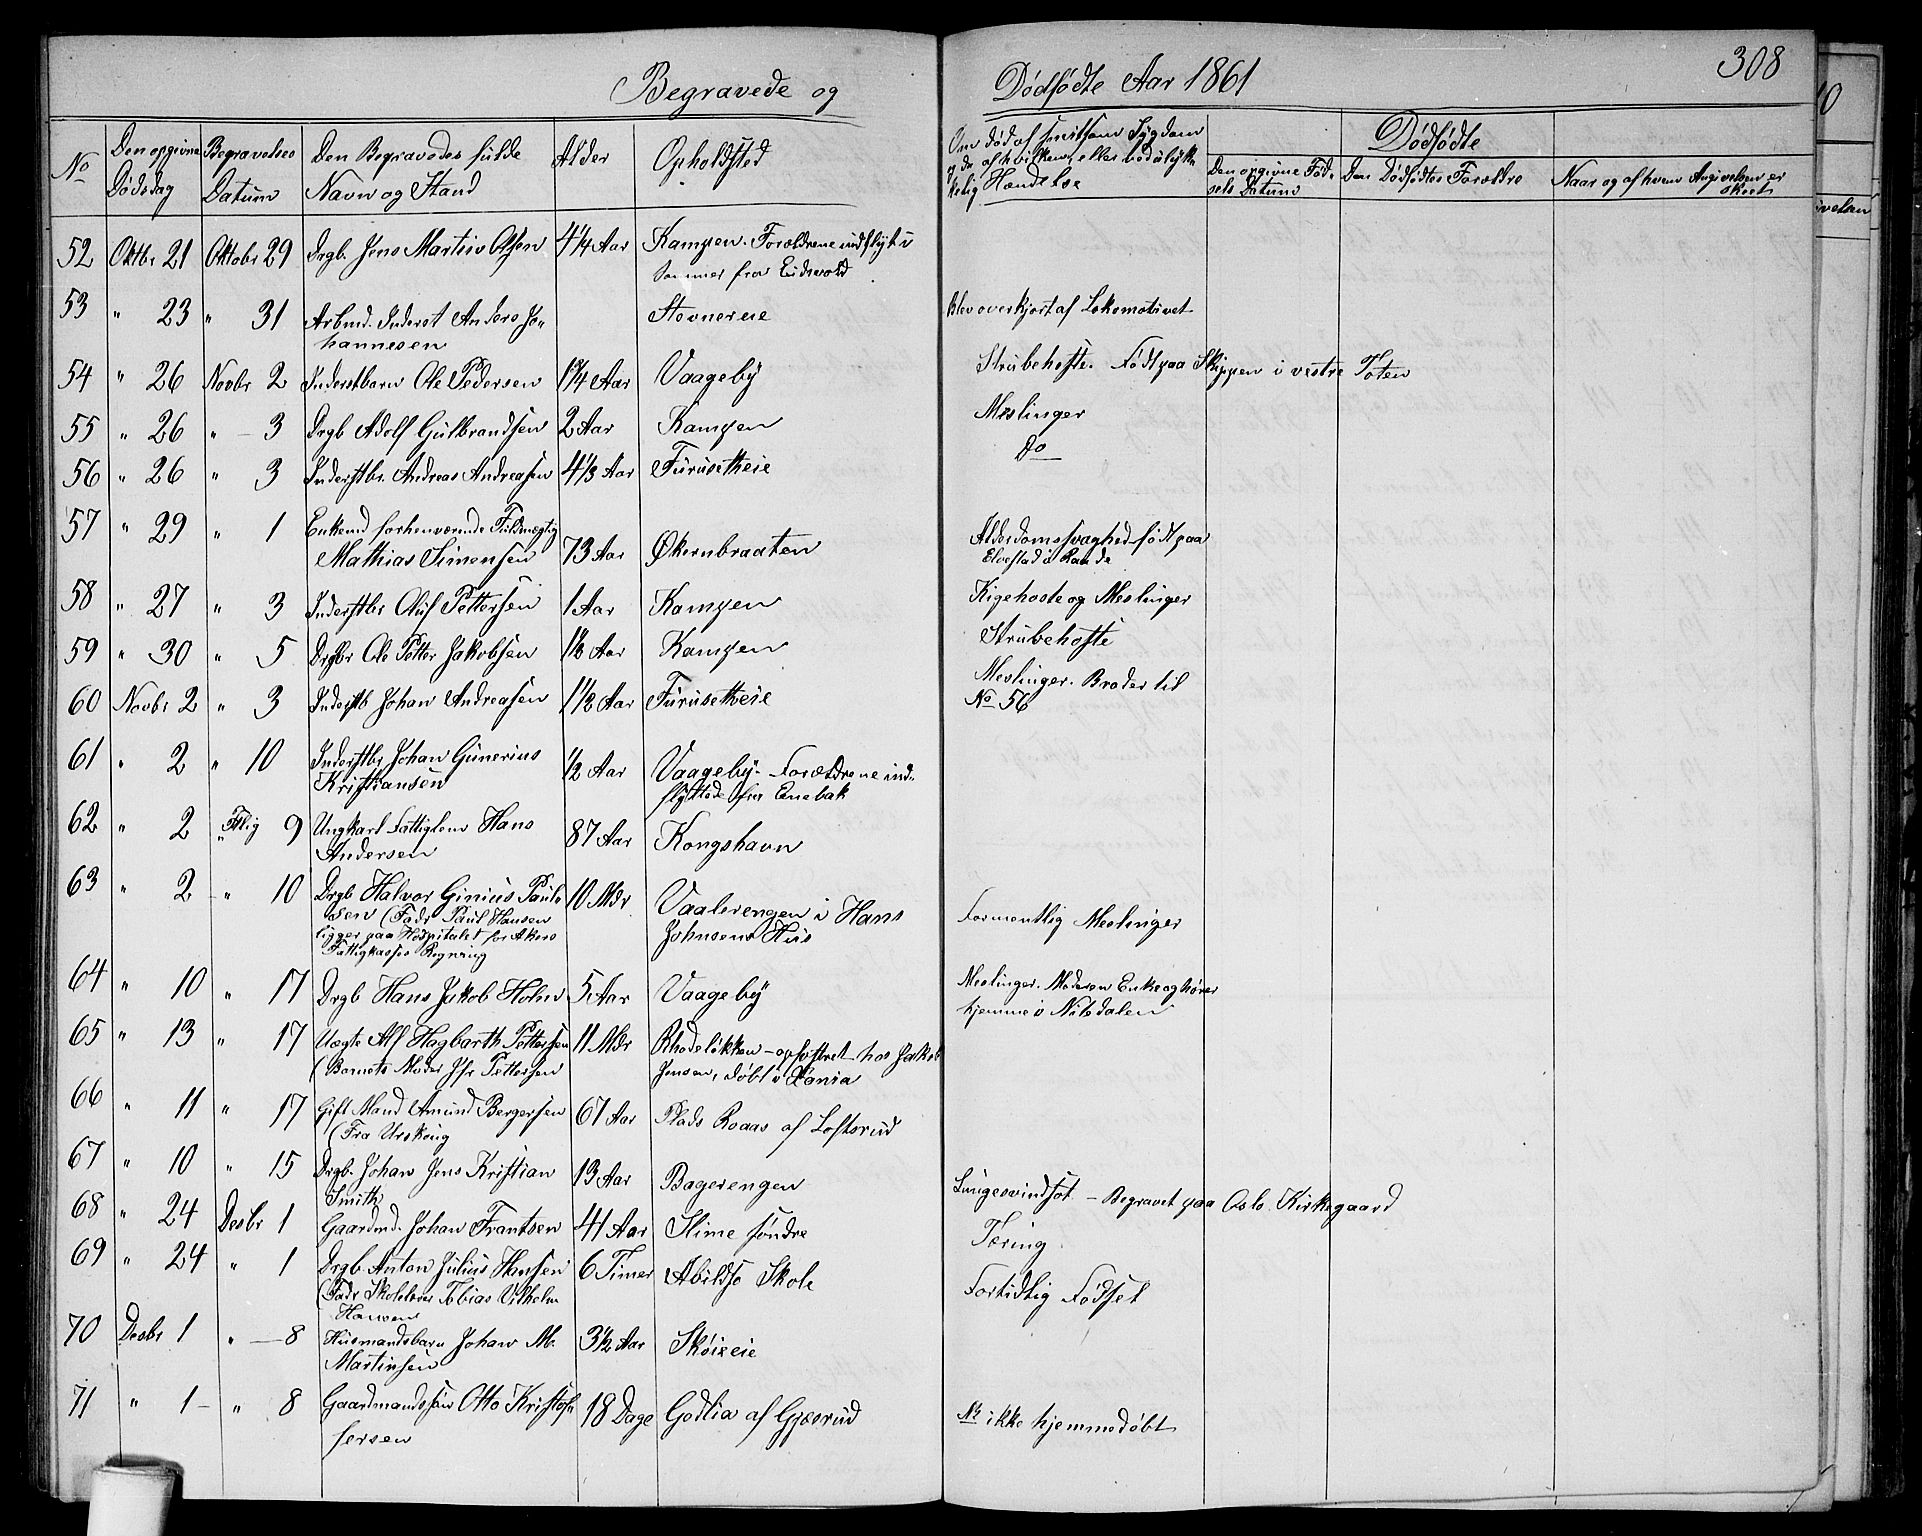 308
Begravede og Dødfødte Aar 1861
No
Den opgivne Dødsdag
Begravelses Datum
Den Begravedes fulde Navn og Stand
Alder
Opholdssted
Om død af smitsom Sygdom
og da af hvilken, eller ved ulykke
kelig Hændelse
Dødfødte
Den opgivne Fød-
sels Datum
Den Dødfødtes Forældre
Naar og af hvem Angivelsen er
skeet
52 Oktbr 21 Oktobr 29 Drgb. Jens Martin Olsen 4 1/4 Aar Kampen. Forældrene indflyt i
Sommer fra Eidsvold
53 " 23 " 31 Arbmd. Inderst Anders Jo-
hannesen Stovnereie Blev overkjørt af Lokomotivet
54 " 26 Novbr 2 Inderstbarn Ole Pedersen 1 3/4 Aar Vaageby Strubehoste. Født paa Skippen i vestre Toten
55 " 26 " 3 Drgb Adolf Gulbrandsen 2 Aar Kampen Meslinger
56 " 26 " 3 Inderstbr. Andreas Andreasen 4 1/3 Aar Furuseteie Do
57 " 29 " 1 Enkemd forhenværende Fuldmægtig
Mathias Simensen 73 Aar Økernbraaten Alderdomssvaghed født paa
Elvestad i Raade
58 " 27 " 3 Inderstbr Oluf Pettersen 1 Aar Kampen Kigehoste og Meslinger
59 " 30 " 5 Drgbr Ole Petter Jakobsen 1 1/2 Aar Kampen Strubehoste
60 Novbr 2 " 3 Inderstb Johan Andreasen 1 1/2 Aar Furuseteie Meslinger. Broder til
No 56
61 " 2 " 10 Inderstbr Johan Gunerius
Kristiansen 1/2 Aar Vaageby. Forældrene ind-
flyttede fra Enebak
62 " 2 " 9 Ungkarl Fattiglem Hans
Andersen 87 Aar Kongshavn
63 " 2 " 10 Drgb Halvor Ginius Paul-
sen (Fadr Paul Hansen
ligger paa Hospitalet for Akers
Fattigkasses Regning 10 Mdr Vaalerengen i Hans
Johnsens Hus Formentlig Meslinger
64 " 10 " 17 Drgb Hans Jakob Holm 5 Aar Vaageby Meslinger. Moderen Enke og hører
hjemme i Nitedalen
65 " 13 " 17 Uegte Alf Hagbarth Pettersen
(Barnets Moder Jfr Pettersen 11 Mdr Rhodeløkken - opfostret hos Jakob
Jensen, døbt i Xania
66 " 11 " 17 Gift Mand Amund Bergersen
(Fra Urskoug 67 Aar Plads Roaas af Loftsrud
67 " 10 " 15 Drgb. Johan Jens Kristian
Smith 13 Aar Bagerengen Lungesvindsot - Begravet paa Oslo Kirkegaard
68 " 24 Desbr 1 Gaardmd. Johan Frantsen 41 Aar Slime søndre Tæring
69 " 24 " 1 Drgb Anton Julius Hansen
(Fadr Skolelærer Tobias Vilhelm
Hansen 6 Timer Abildsø Skole Fortidlig Fødsel
70 Desbr 1 " 8 Husmandsbarn Johan M.
Martinsen 3 1/2 Aar Skøieneie
71 " 1 " 8 Gaardmandssøn Otto Kristof-
fersen 18 Dage Godlia af Gjæsrud NB ikke hjemmedøbt